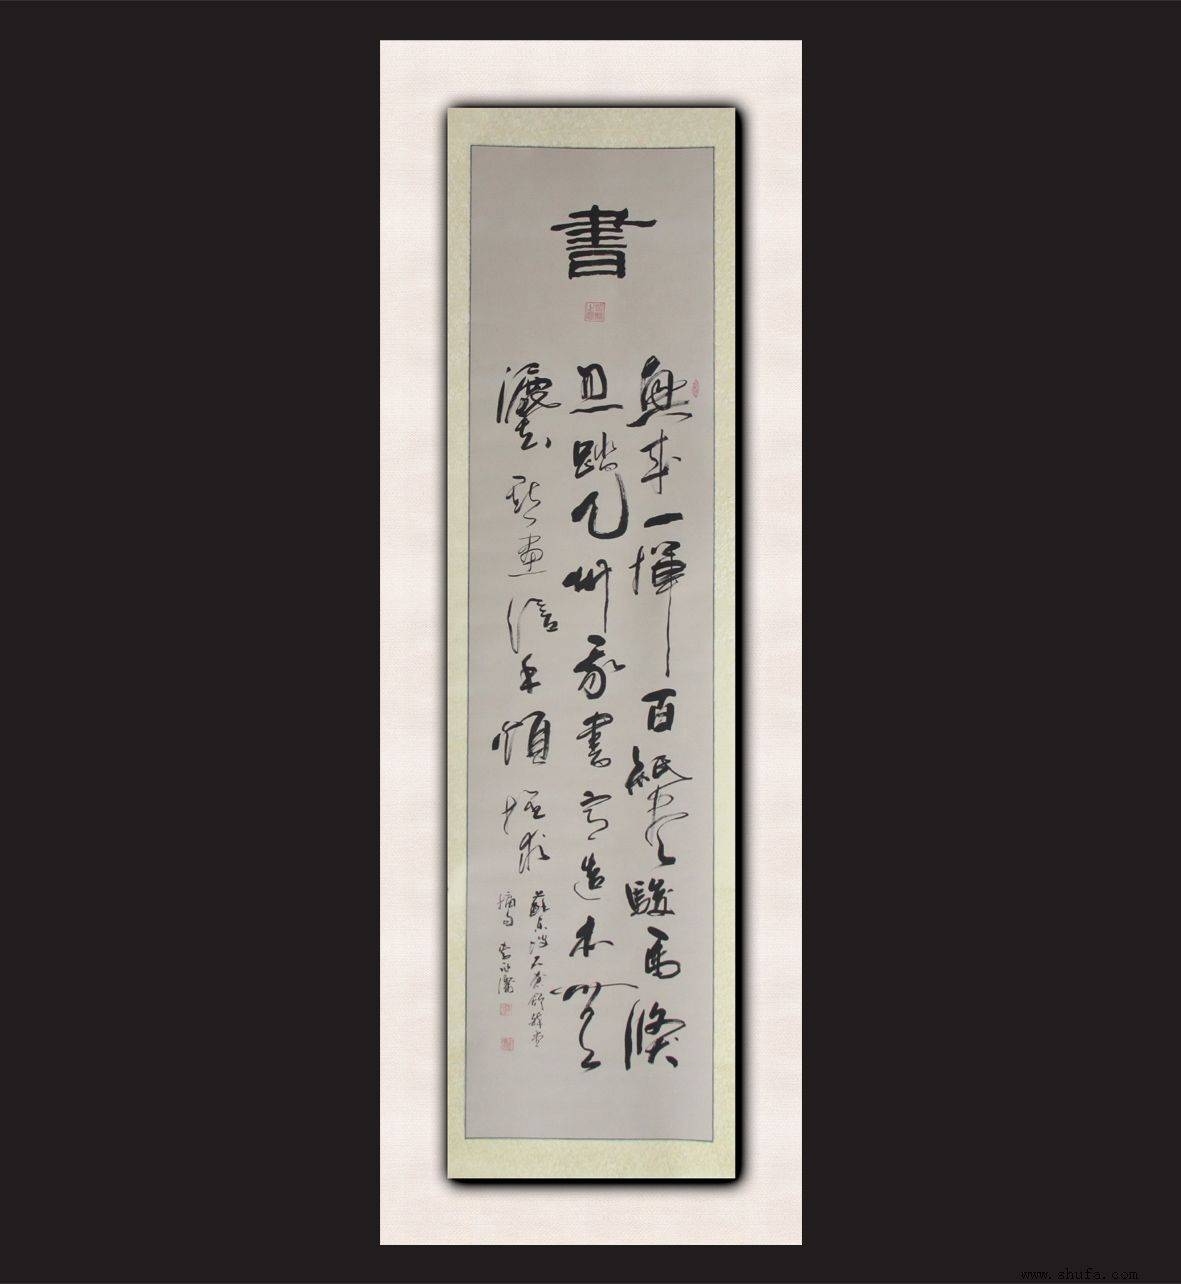 書
興来一揮百紙盡駿馬倏
忽踏九州我書意造本無
灋點畫信手煩推求
蘇東坡石蒼舒醉堂
摘句
www.shufa.com